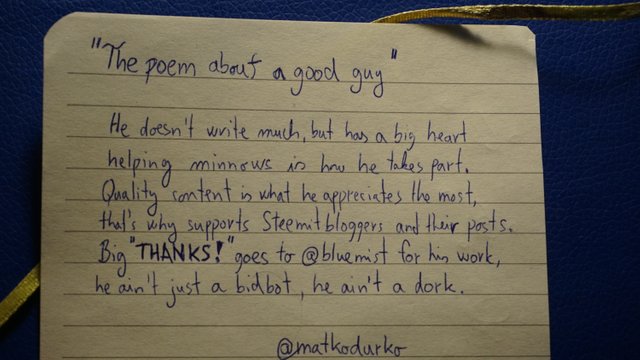 "The poem about a good guy"
He doesn't write much, but has a big heart
helping minnows is how he takes part.
Quality content is what he appreciates the most,
that's why supports Steemitbloggers and their posts.
Big "THANKS!" goes to @bluemist for his work,
he ain't just a bidbot, he ain't a dork.
@matkodurko